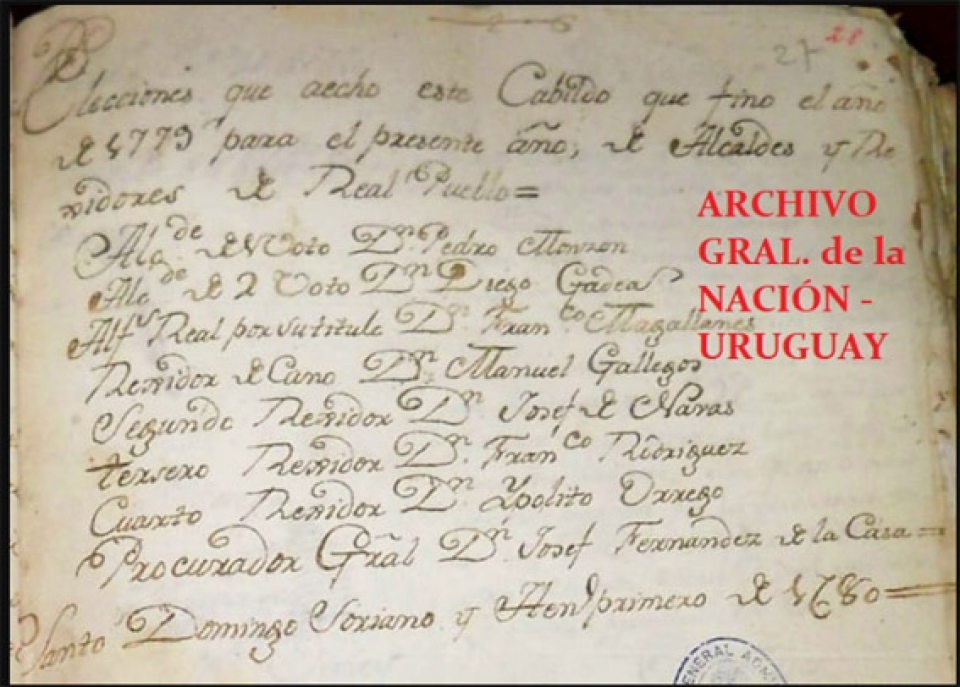 27 28
Elecciones que aecho este Cabildo que fino el año
de 1779 para el presente año, de Alcaldes y Re
xidores de Real Pueblo =
Alc.de de 1 Voto D.n Pedro Monzon
Alc.de de 2 Voto D.n Diego Gadea
Alf.s Real por su titulo D.n Fran.co Magallanes
Rexidor de Cano D.n Manuel Gallegos
Segundo Rexidor D.n Josef de Navas
tersero Rexidor D.n Fran.co Rodriguez
Cuarto Rexidor D.n Ypolito Orrego
Procurador Gñal D.n Josef Fernandez de la Casa =
Santo Domingo Soriano y primero de 1780 =
ARCHIVO
GRAL. de la
NACIÓN -
URUGUAY